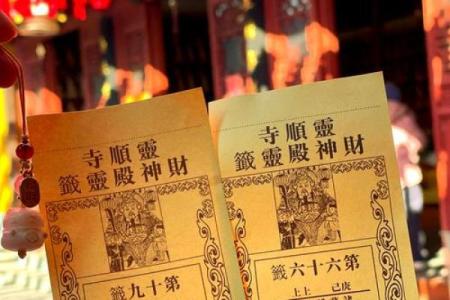 靈順寺
財神殿靈籤
第十九籤
靈順寺
財神殿靈籤
第六十六籤
庚己 上上